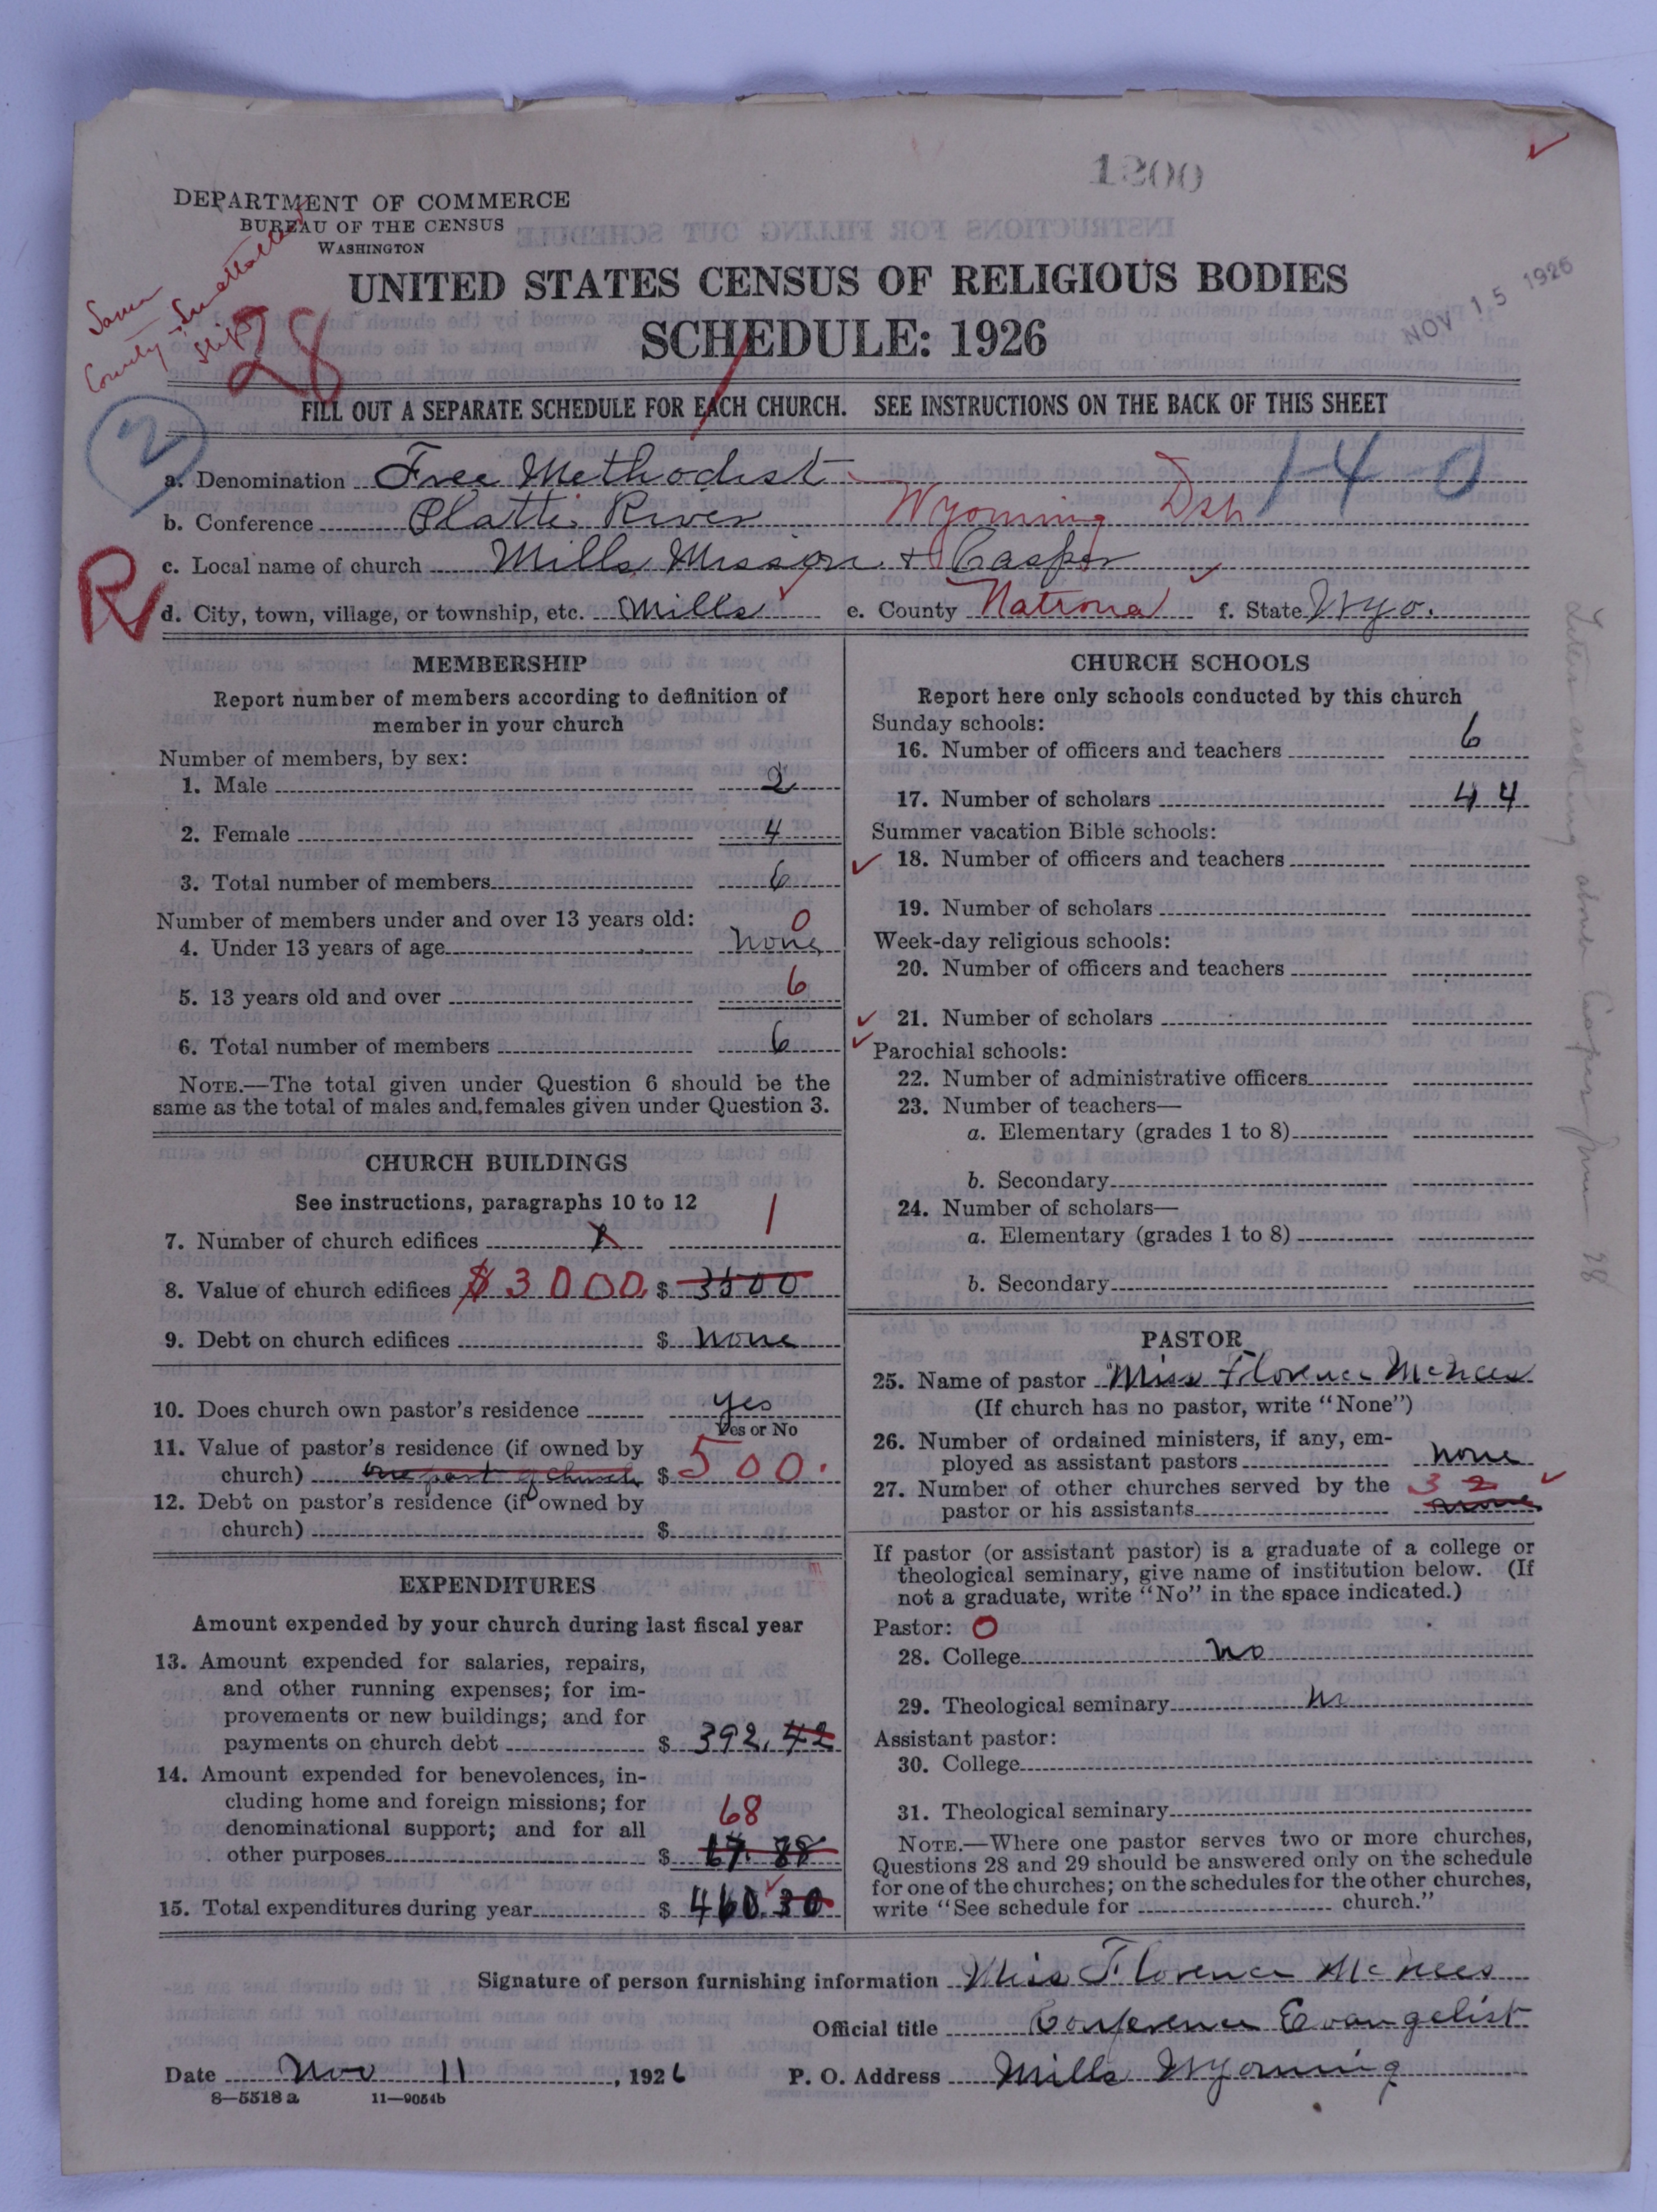 1200
DEPARTMENT OF COMMERCE
BUREAU OF THE CENSUS
WASHINGTON
UNITED STATES CENSUS OF RELIGIOUS BODIES
NOV 15 1926
SCHEDULE: 1926
County
slip
28
FILL OUT A SEPARATE SCHEDULE FOR EACH CHURCH. SEE INSTRUCTIONS ON THE BACK OF THIS SHEET
2
1-40
a. Denomination Free Methodist
b. Conference Platte River Wyoming Dsh
c. Local name of church Mills Mission & Casper
R
d. City, town, village, or township, etc. Mills e. County Natrona f. State Wyo.
MEMBERSHIP
Report number of members according to definition of
member in your church
Number of members, by sex:
1. Male 2
2. Female 4
3. Total number of members 6
Number of members under and over 13 years old: 0
4. Under 13 years of age none
5. 13 years old and over 6
6. Total number of members 6
NOTE.—The total given under Question 6 should be the
same as the total of males and females given under Question 3.
CHURCH BUILDINGS
See instructions, paragraphs 10 to 12
7. Number of church edifices 1
8. Value of church edifices $3000 $ 3500
9. Debt on church edifices $ none
10. Does church own pastor's residence yes
Yes or No
11. Value of pastor's residence (if owned by
church) one part of church $ 500.
12. Debt on pastor's residence (if owned by
church) $
EXPENDITURES
Amount expended by your church during last fiscal year
13. Amount expended for salaries, repairs,
and other running expenses; for im-
provements or new buildings; and for
payments on church debt $ 392.42
14. Amount expended for benevolences, in-
cluding home and foreign missions; for
denominational support; and for all 68
other purposes $ 67.88
15. Total expenditures during year $ 460.30
CHURCH SCHOOLS
Report here only schools conducted by this church
Sunday schools:
16. Number of officers and teachers 6
17. Number of scholars 44
Summer vacation Bible schools:
18. Number of officers and teachers
19. Number of scholars
Week-day religious schools:
20. Number of officers and teachers
21. Number of scholars
Parochial schools:
22. Number of administrative officers
23. Number of teachers—
a. Elementary (grades 1 to 8)
b. Secondary
24. Number of scholars—
a. Elementary (grades 1 to 8)
b. Secondary
PASTOR
25. Name of pastor Miss Florence McNees
(If church has no pastor, write "None")
26. Number of ordained ministers, if any, em-
ployed as assistant pastors none
27. Number of other churches served by the 3 2
pastor or his assistants none
If pastor (or assistant pastor) is a graduate of a college or
theological seminary, give name of institution below. (If
not a graduate, write "No" in the space indicated.)
Pastor: 0
28. College no
29. Theological seminary no
Assistant pastor:
30. College
31. Theological seminary
NOTE.—Where one pastor serves two or more churches,
Questions 28 and 29 should be answered only on the schedule
for one of the churches; on the schedules for the other churches,
write "See schedule for church."
Signature of person furnishing information Miss Florence McNees
Official title Conference Evangelist
Date Nov 11, 1926 P. O. Address Mills Wyoming
8—5518 a 11—9054b